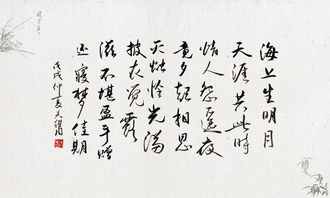 海上生明月
天涯共此时
情人怨遥夜
竟夕起相思
灭烛怜光满
披衣觉露
滋不堪盈手赠
还寝梦佳期
戊戌仲夏